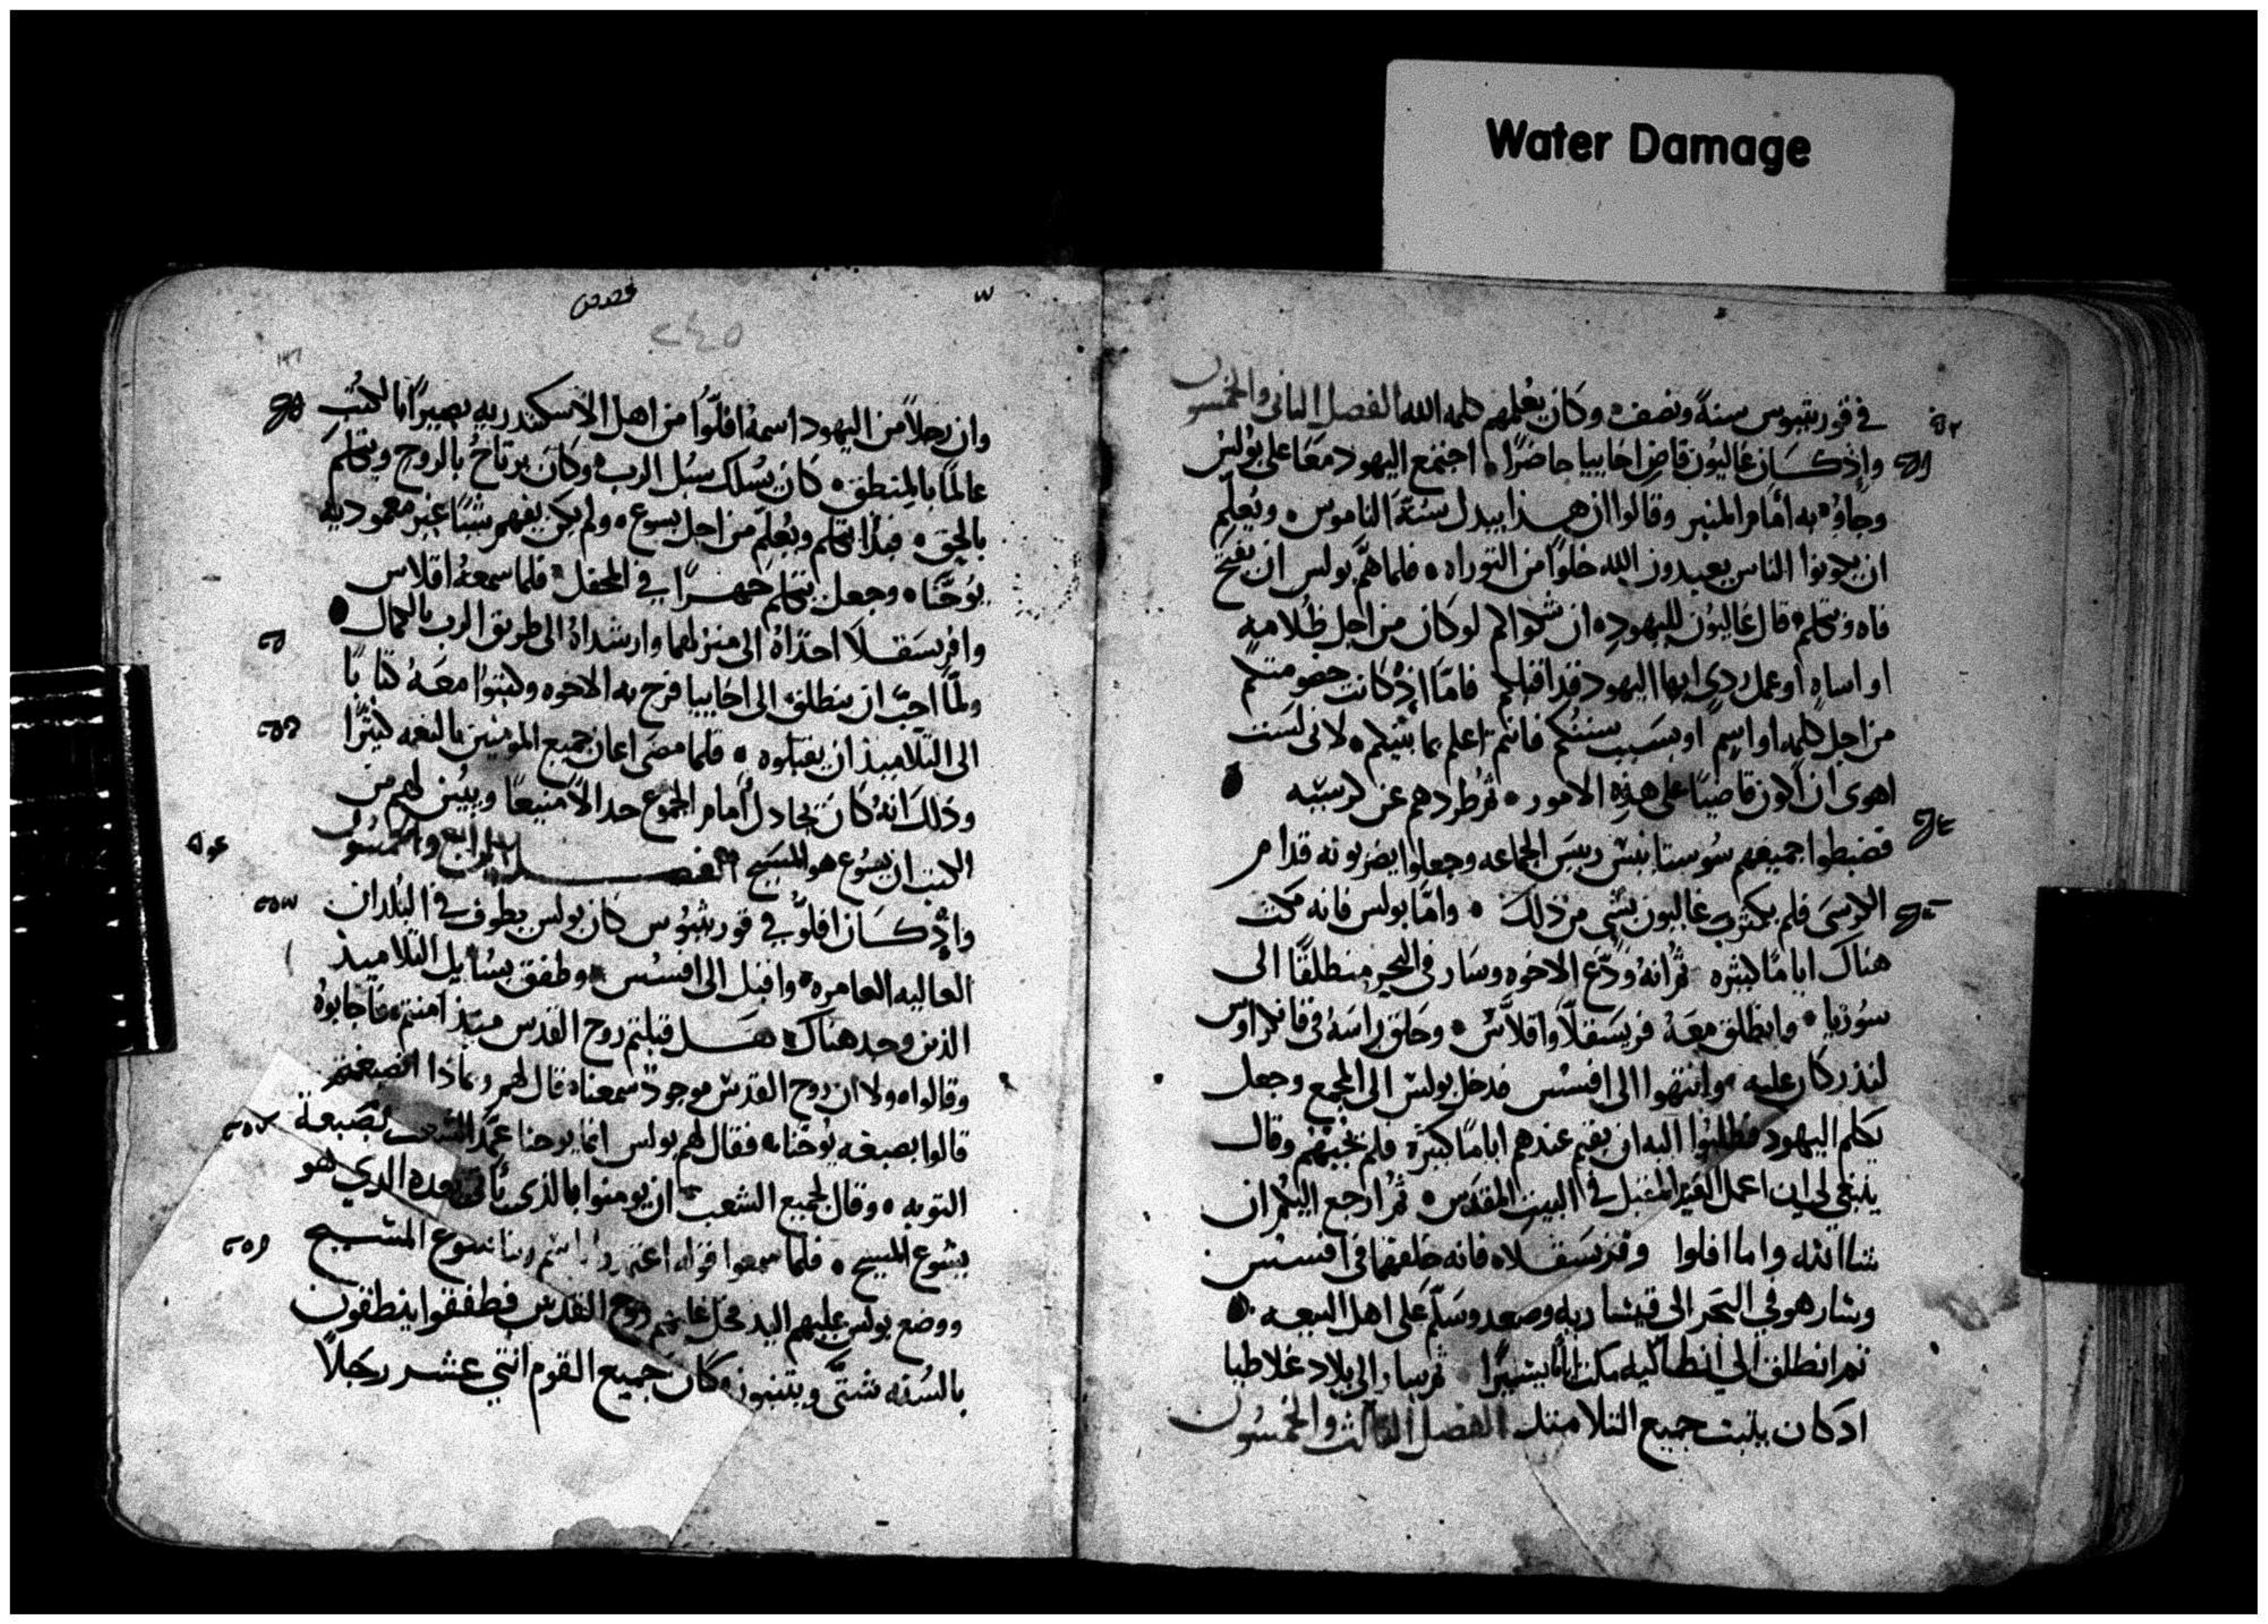 Water Damage
في قورنثيوس سنة ونصف وكان يعلمهم كلمه الله الفصل الثاني والخمسون
واذ كـان غاليون قاضي اخاييا حاضرا اجتمع اليهود معا على بولس
وجاوه به أمام المنبر وقالوا ان هـذا يبدل سنة الناموس ويعلم
ان يكونوا الناس يعبدون الله خلوا من التوراه فلما هم بولس ان يفتح
فاه ويتكلم قال غاليون لليهود ان شكوا كم لو كان من اجل ظلامه
او اساه او عمل ردي ايها اليهود قد اقبلكم فاما اذ كانت خصومتكم
من اجل كلمه او اسم او بسبب سنتكم فانتم اعلم بما بينكم لاني لست
اهوى ان اكون قاضيا على هذه الامور ثم طردهم عن كرسيه
فضبطوا جميعهم سوستانيس رييس الجماعه وجعلوا يضربونه قدام
الكرسي فلم يكترث غاليون بشي من ذلك واما بولس فانه مكث
هناك اياما كثيره ثم انه ودع الاخوه وسار في البحر منطلقا الى
سوريا وانطلق معه فريسقلا واقلاس وحلق راسه في قانكراوس
لنذر كان عليه وانتهوا الى افسس فدخل بولس الى المجمع وجعل
يكلم اليهود فطلبوا اليه ان يقيم عندهم اياما كثيرة فلم يجبهم وقال
ينبغي لي ان اعمل العيد المقبل في البيت المقدس ثم ارجع اليكم ان
شا الله واما افلوا وفريسقـلا فانه خلفهما في افسس
وسار هو في البحر الى قيساريه وصعد وسلم على اهل البيعه
ثم انطلق الي انطاكيه مكث يسيرا ثم سار الى بلاد غلاطيا
اذ كان يثبت جميع التلاميذ الفصل الثالث والخمسون
قصص
٢٤٥
وان رجلا من اليهود اسمه افلوا من اهل الاسكندريه بصيرا بالكتب
عالما بالمنطق كان يسلك سبل الرب وكان يرتاح بالروح ويتكلم
بالحق فبدا يتكلم ويعلم من اجل يسوع ولم يكن يفهم شيا غير معموديه
يوحنا وجعل يتكلم جهـرا في المحفل فلما سمعه اقلاس
وافريسقـلا اخذاه الى منزلهما وارشداه الى طريق الرب بالكمال
ولما احب ان ينطلق الى اخاييا فرح به الاخوه وكتبوا معه كتابا
الى التلاميذ ان يقبلوه فلما مضى اعان جميع المومنين بالنعمه كثيرا
وذلك انه كان يجادل أمام الجموع جدالا منيعا ويبين لهم من
الكتب ان يسوع هو المسيح الفصـــل الرابع والخمسون
واذ كـان افلو في قورنثيوس كان بولس يطوف في البلدان
العاليه العامره واقبل الى افسس وطفق يسايل التلاميذ
الذين وجد هناك هـل قبلتم روح القدس ميذ امنتم فاجابوه
وقالوا ولا ان روح القدس موجود سمعنا قال لهم وبماذا انصبغتم
قالوا بصبغه يوحنا فقال لهم بولس انما يوحنا عمد الشعب بصبغة
التوبه وقال لجميع الشعب ان يومنوا بالذي يأتي بعده الذي هو
يسوع المسيح فلما سمعوا قوله اعتمدوا باسم ربنا يسوع المسيح
ووضع بولس عليهم اليد فحل عليهم روح القدس فطفقوا ينطقون
بالسنه شتى ويتنبون وكان جميع القوم اثني عشر رجلا